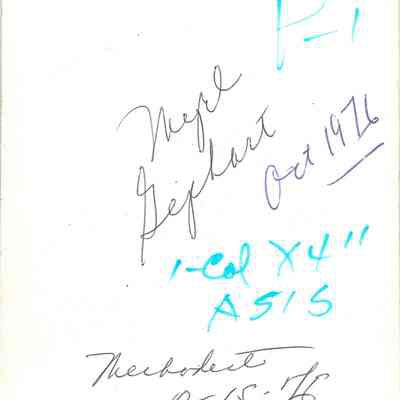 P-1
Gephart
Oct 1976
1-Col X 4"
ASIS
Methodist